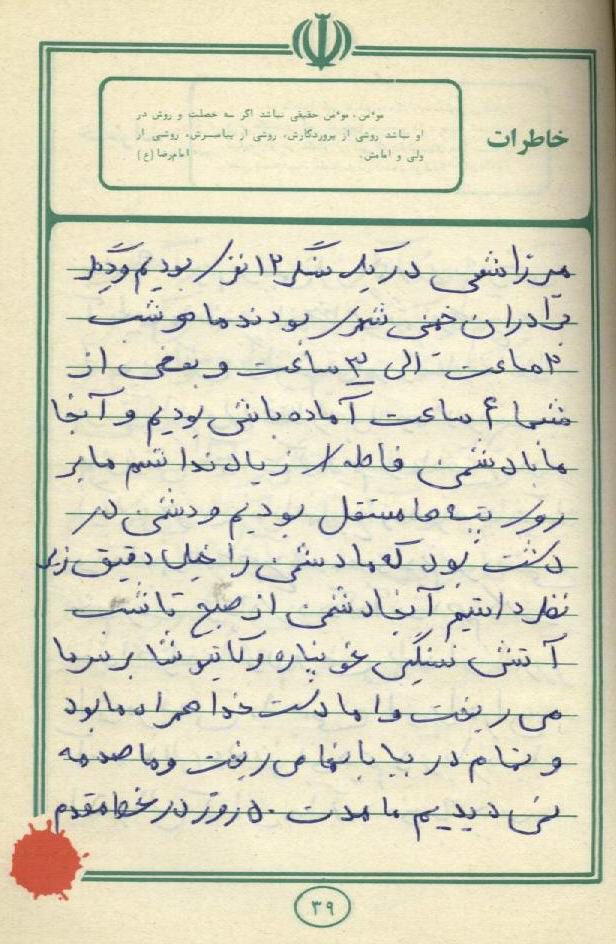 مؤمن، مؤمن حقیقی نباشد اگر سه خصلت و روش در
او نباشد روشی از پروردگارش، روشی از پیامبرش، روشی از
ولی و امامش. امام رضا (ع)
خاطرات
در یک سنگر ۱۲ نفر بودیم و دیگر
برادران خمینی شهری بودند ما هر شب
۲ ساعت الی ۳ ساعت و بعضی از
شبها ۴ ساعت آماده باش بودیم و آنجا
ما با دشمن فاصله زیاد نداشتیم ما بر
روی تپه ها مستقل بودیم و دشمن در
دشت بود که ما دشمن را خیلی دقیق زیر
نظر داشتیم آنجا دشمن از صبح تا شب
آتش سنگین خمپاره و کاتیوشا بر سر ما
می ریخت و اما دست خدا همراه ما بود
و تمام در بیابانها می ریخت و ما صدمه
نمی دیدیم ما مدت ۵۰ روز در خط مقدم
۳۹